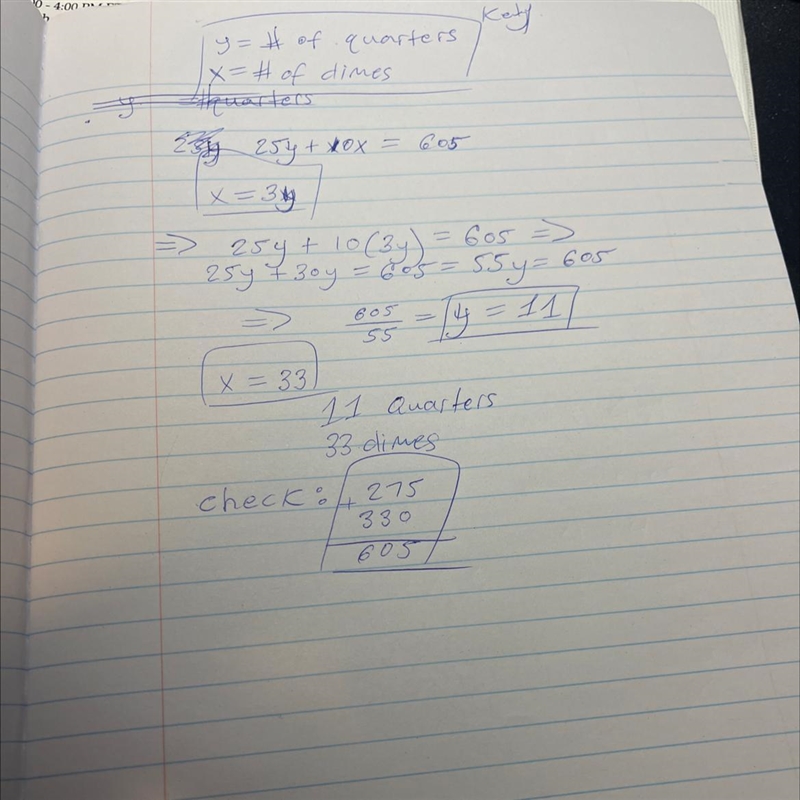 0 - 4:00 PM
Key
y = # of quarters
x = # of dimes
y #quarters
25y 25y + 10x = 605
x = 3y
=> 25y + 10(3y) = 605 =>
25y + 30y = 605 = 55y = 605
=> 605/55 = y = 11
x = 33
11 Quarters
33 dimes
check: + 275
330
605